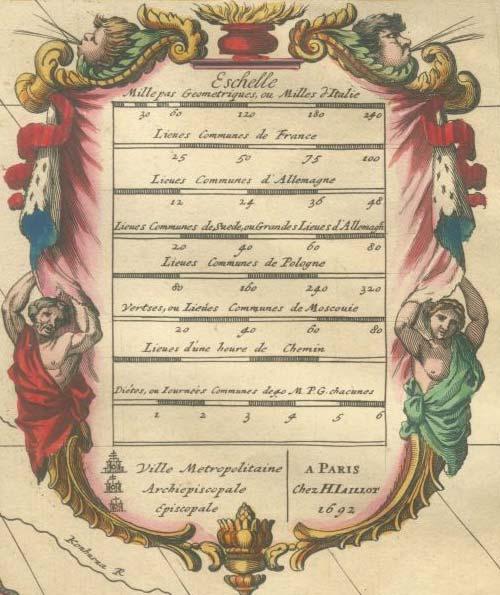 Eschelle
Mille pas Geometriques, ou Milles d'Italie
30 60 120 180 240
Lieues Communes de France
25 50 75 100
Lieues Communes d'Allemagne
12 24 36 48
Lieues Communes de Suede, ou Grandes Lieues d'Allemagn
20 40 60 80
Lieues Communes de Pologne
80 160 240 320
Vertses, ou Lieues Communes de Moscouie
20 40 60 80
Lieues d'une heure de Chemin
Diétes, ou Iournées Communes de 40 M. P. G. chacunes
1 2 3 4 5 6
Ville Metropolitaine
Archiepiscopale
Episcopale
A PARIS
Chez H. IAILLOT
1692